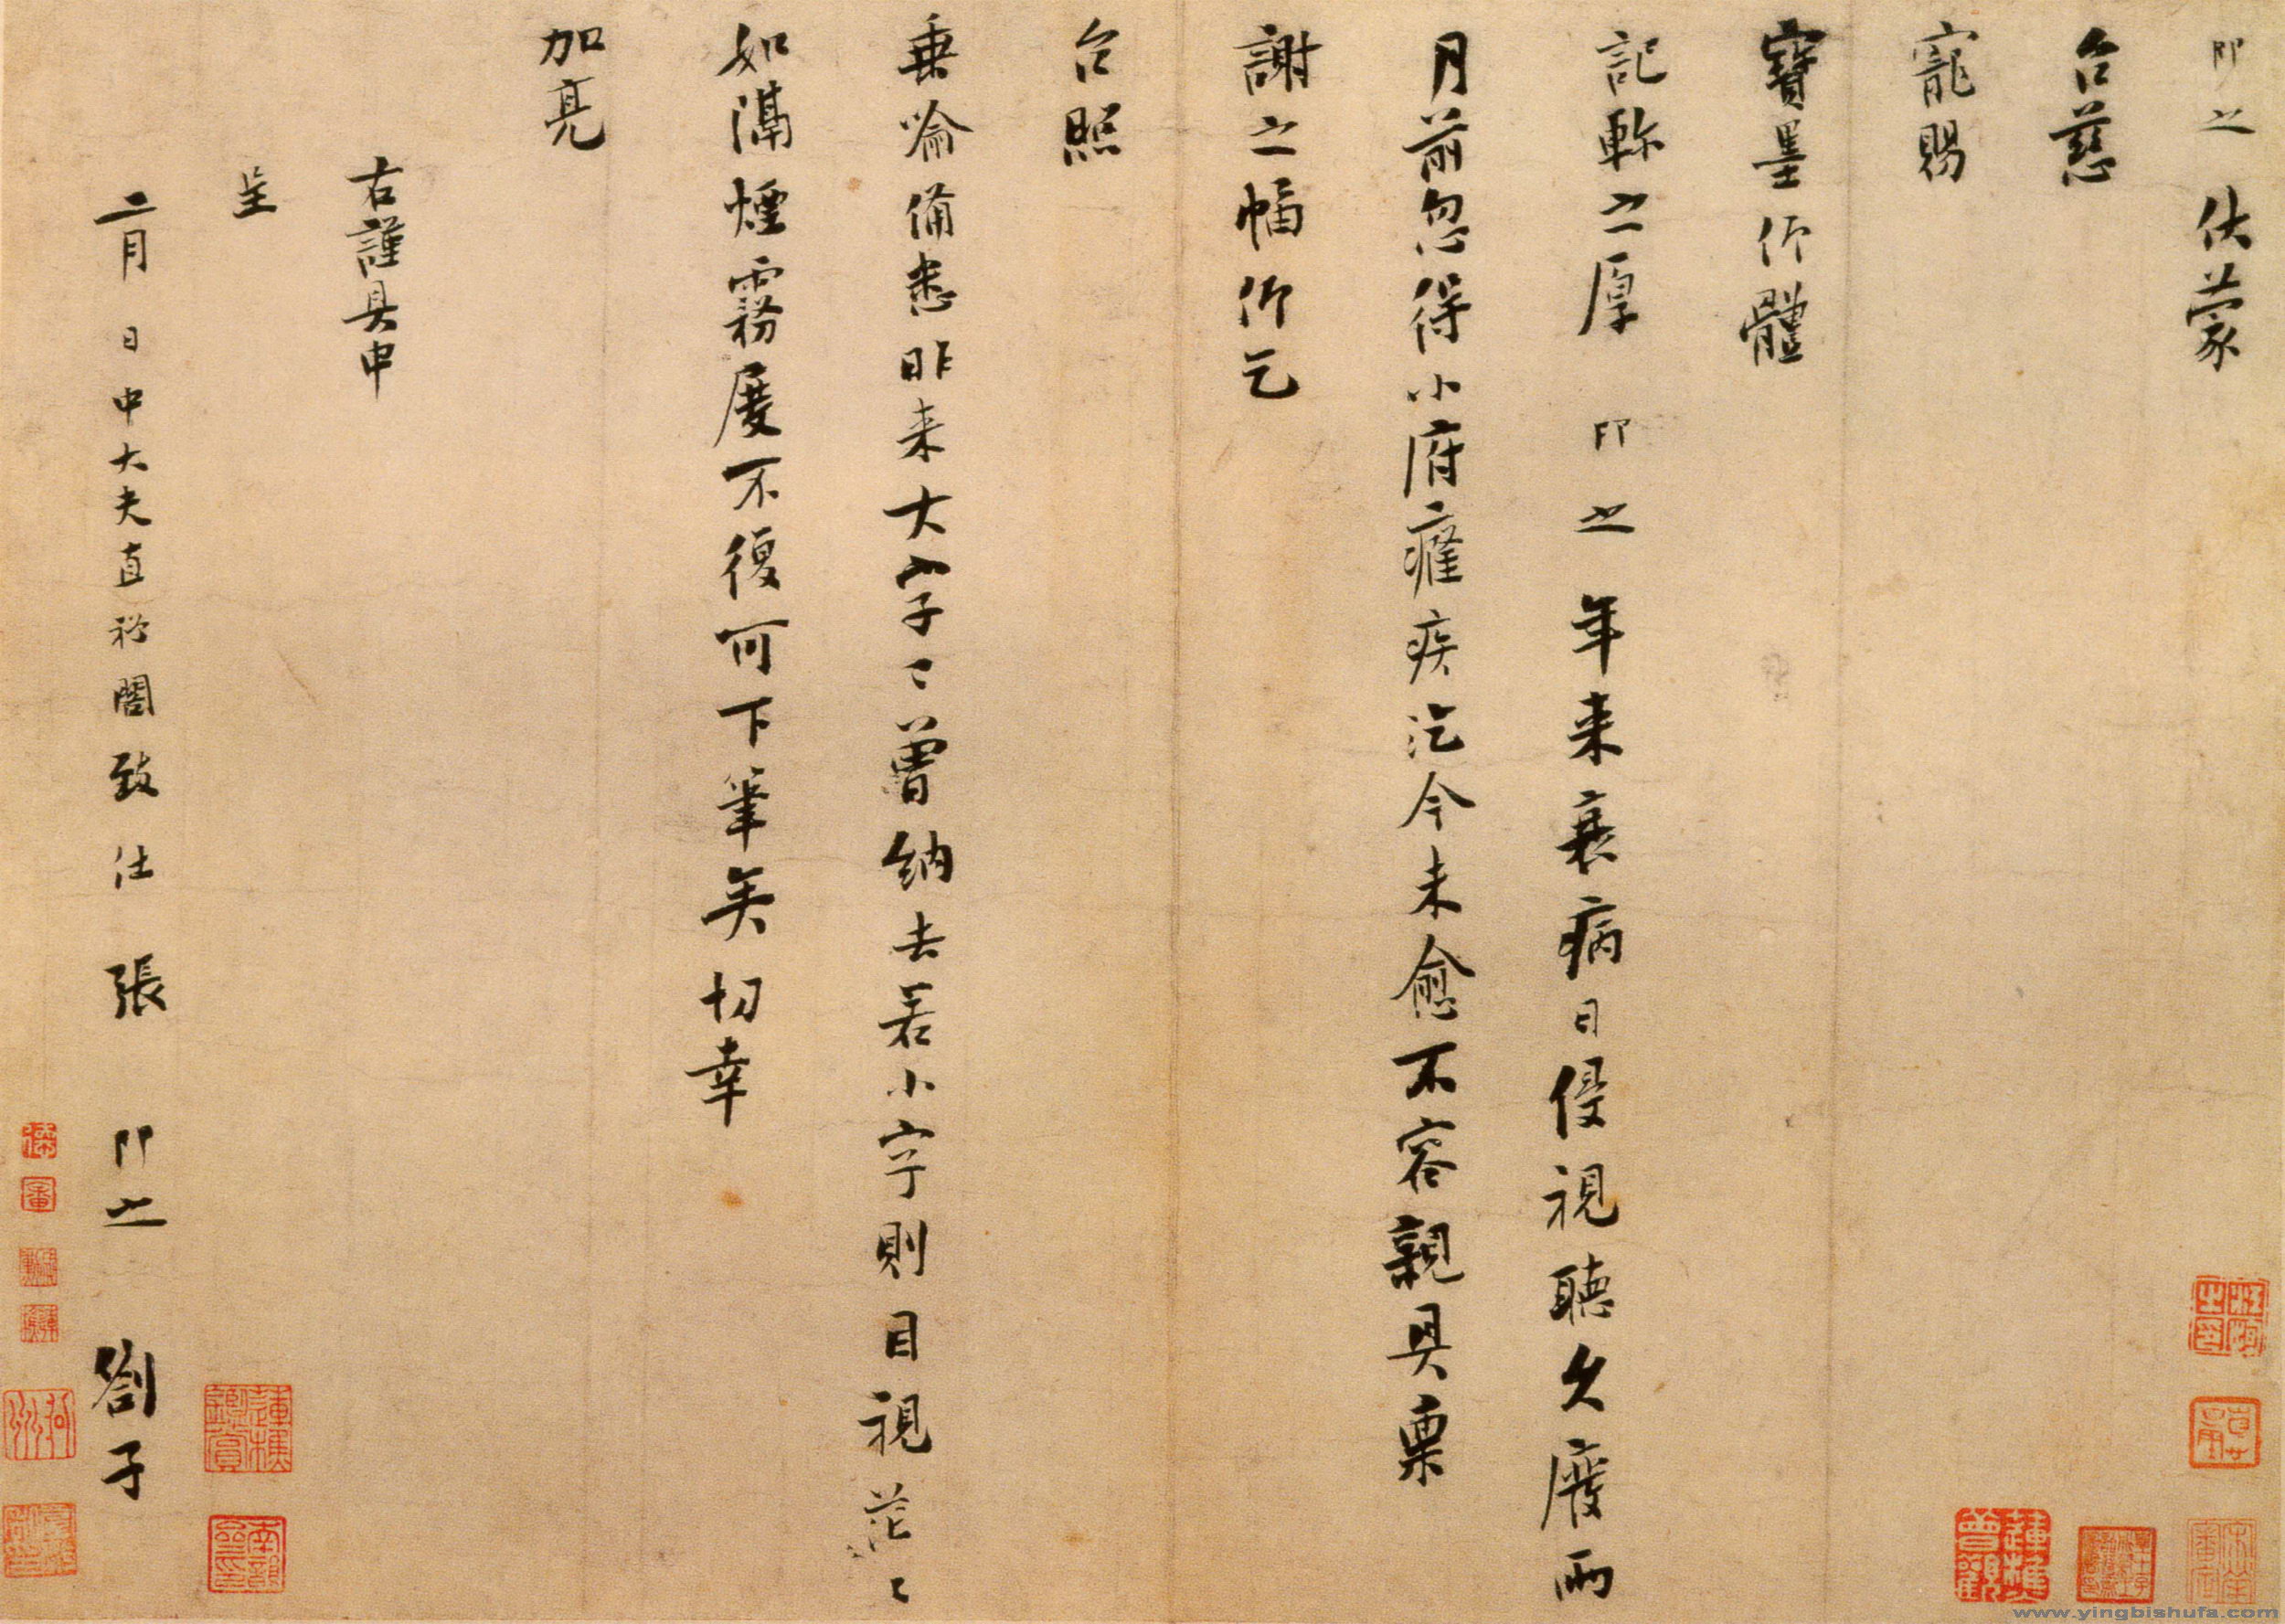 即之 伏蒙
台慈
寵賜
寶墨仰體
記軫之厚 即之 年来衰病日侵視聽久廢兩
月前忽得小府癰疾迄今未愈不容親具稟
謝之幅仰乞
台照
垂喻備悉昨来大字〻曽纳去若小字則目視茫〻
如隔煙霧屡不復可下筆矣切幸
加亮
右謹具申
呈
二月 日中大夫直祕閣致仕 張 即之 劄子
www.yingbishufa.com